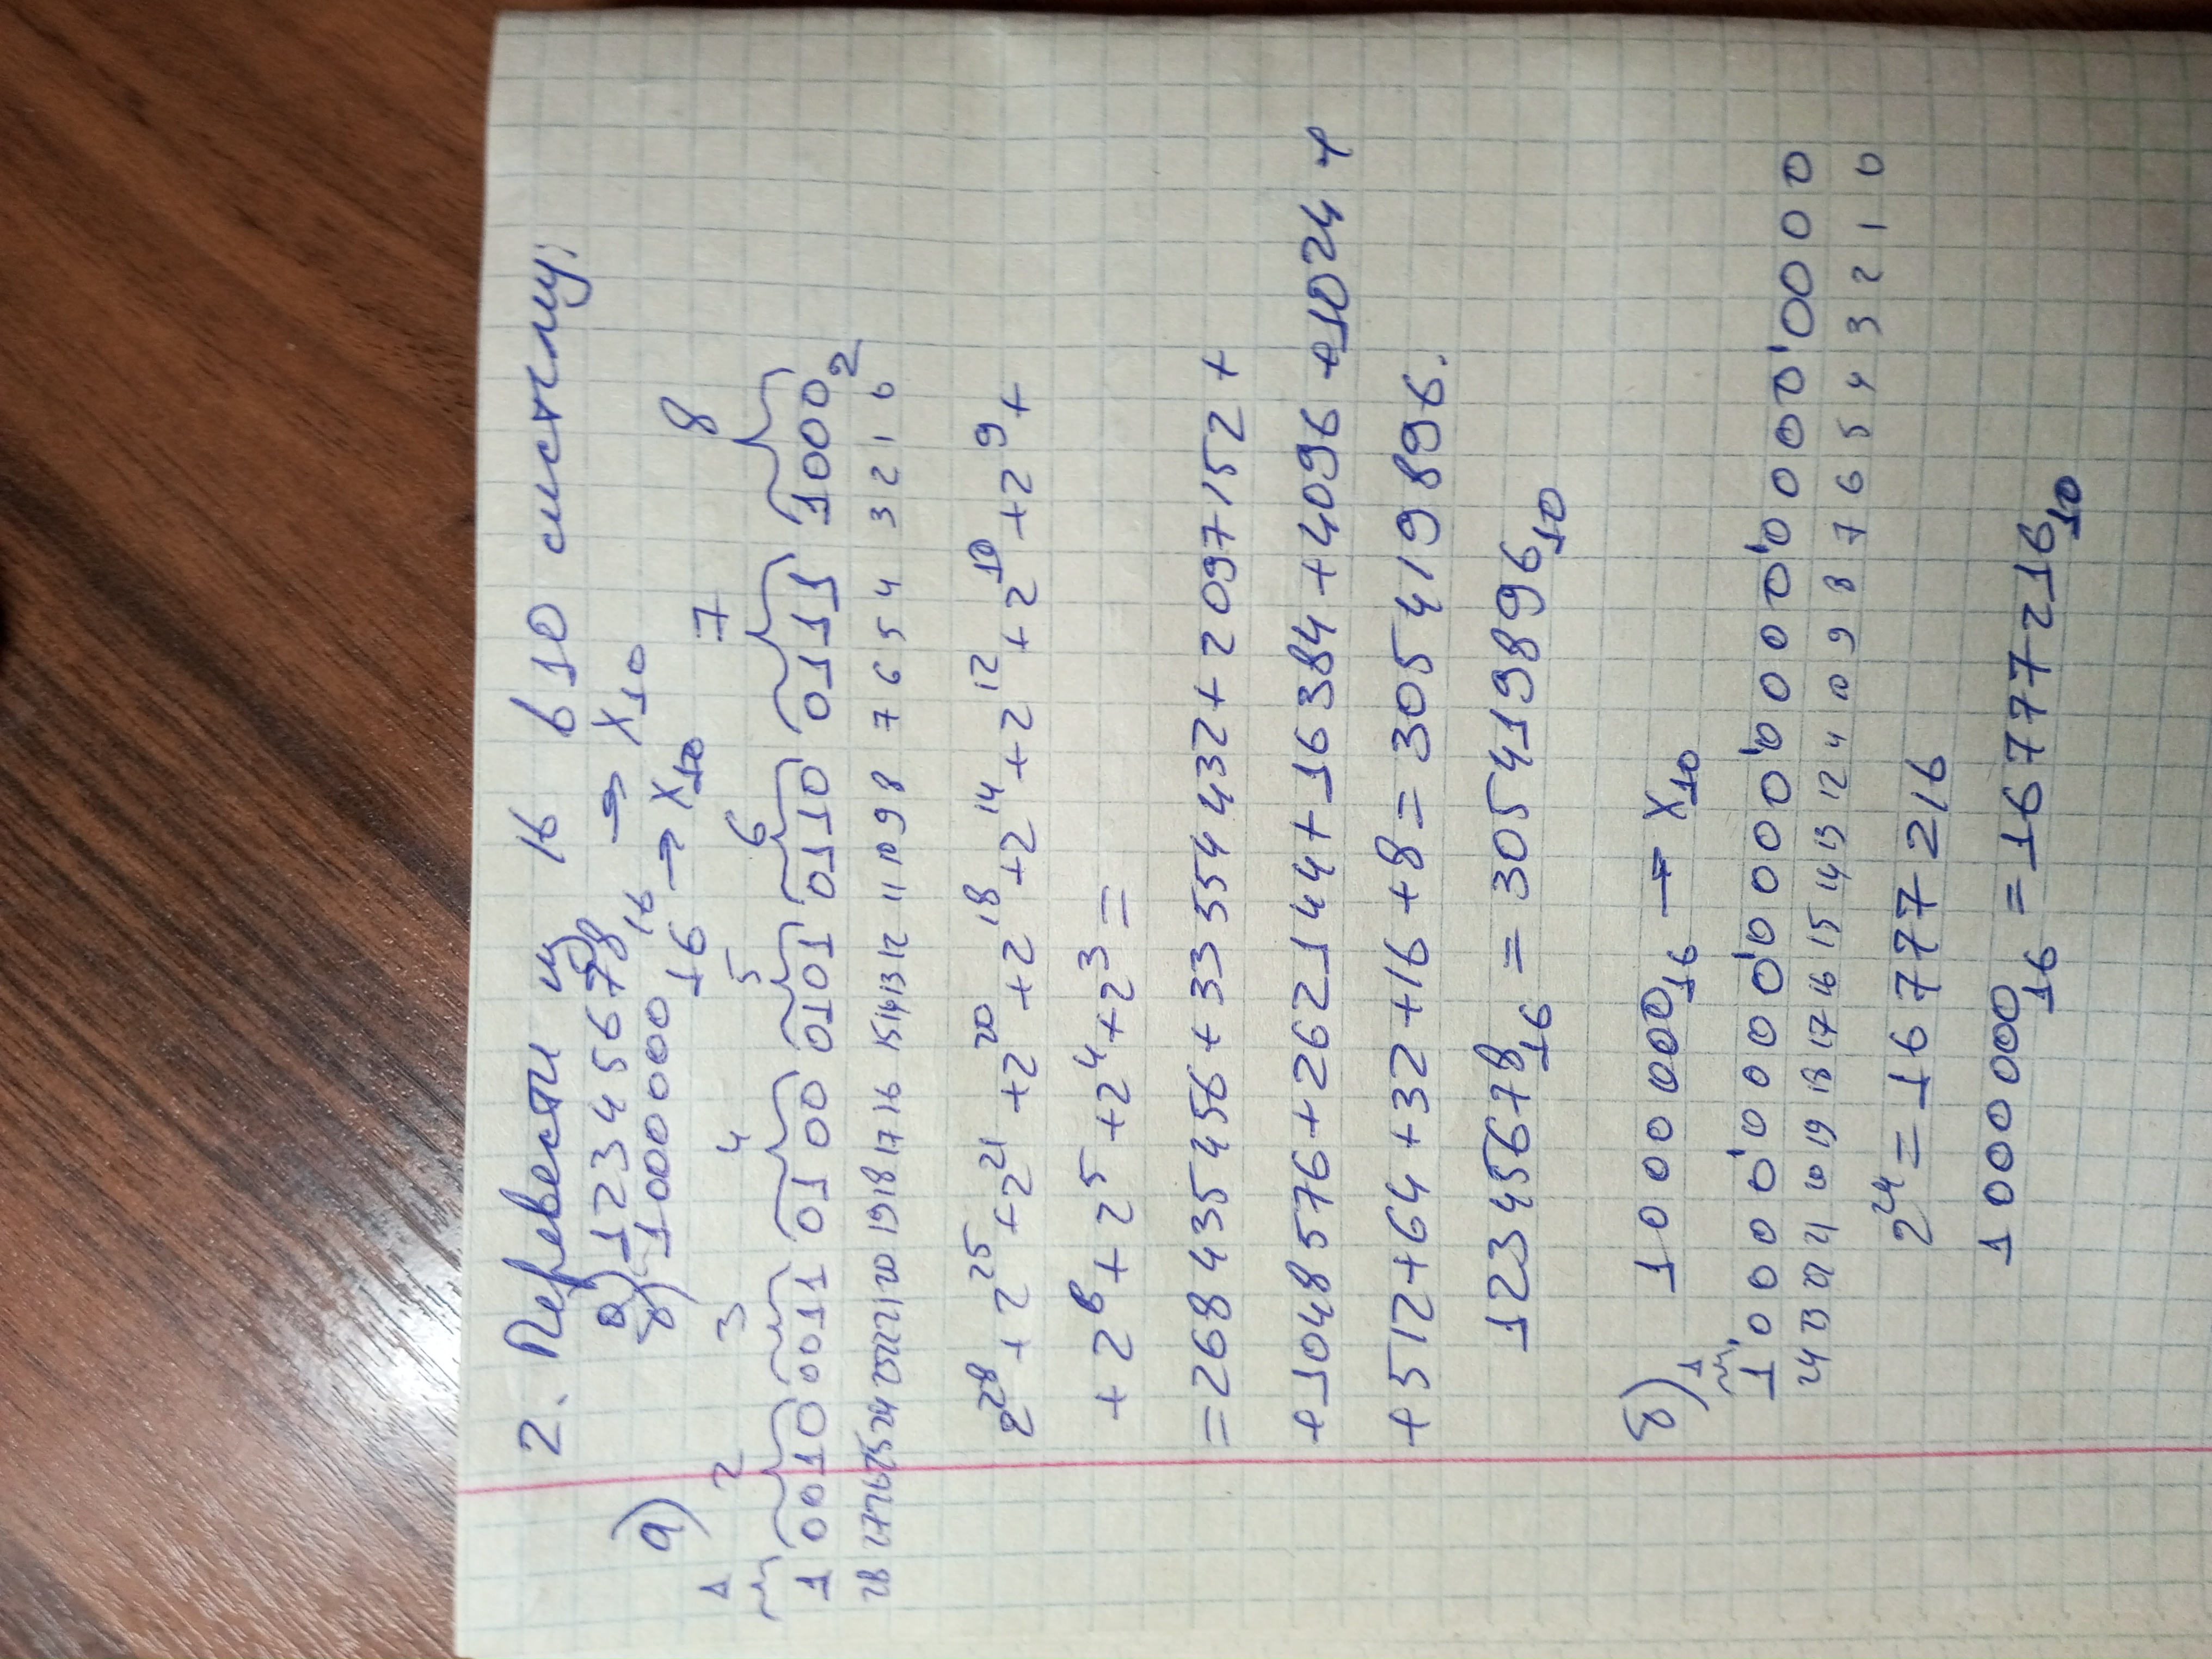 2. Перевести из 16 в 10 систему:
а) 12345678₁₆ → X₁₀
б) 1000000₁₆ → X₁₀
а)
1 2 3 4 5 6 7 8
1 0010 0011 0100 0101 0110 0111 1000₂
28 27 26 25 24 23 22 21 20 19 18 17 16 15 14 13 12 11 10 9 8 7 6 5 4 3 2 1 0
2²⁸ + 2²⁵ + 2²¹ + 2²⁰ + 2¹⁸ + 2¹⁴ + 2¹² + 2¹⁰ + 2⁹ +
+ 2⁶ + 2⁵ + 2⁴ + 2³ =
= 268 435 456 + 33 554 432 + 2 097 152 +
+ 1048 576 + 262 144 + 16 384 + 4096 + 1024 +
+ 512 + 64 + 32 + 16 + 8 = 305 419 896.
12345678₁₆ = 305419896₁₀
б) 1000000₁₆ → X₁₀
1
1'0000'0000'0000'0000'0000'0000
24 23 22 21 20 19 18 17 16 15 14 13 12 11 10 9 8 7 6 5 4 3 2 1 0
2²⁴ = 16 777 216
1000000₁₆ = 16777216₁₀